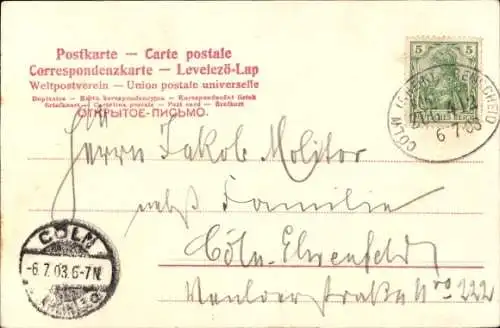 Postkarte — Carte postale
Correspondenzkarte — Levelező-Lap
Weltpostverein — Union postale universelle
Dopisnice — Karta korespondencyjna — Korespondenční lístek
Briefkaart — Cartolina postale — Post card — Brefkort
ОТКРЫТОЕ-ПИСЬМО.
5 5
DEUTSCHES REICH
CÖLN
6 7 03
An
Herrn Jakob Molitor
nebst Familie
Cöln-Ehrenfeld
Venloerstraße No 222
CÖLN
-6.7.03.6-7N